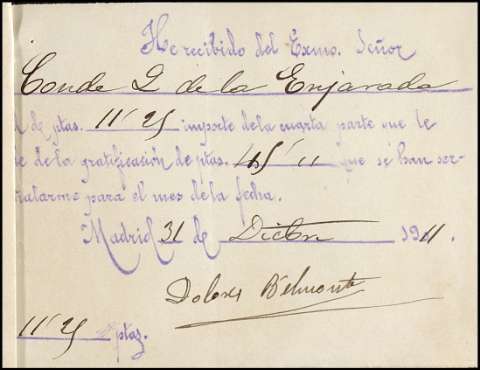 He recibido del Exmo. Señor
Conde 2 de la Enjarada
d de ptas. 11'25 importe de la cuarta parte que le
e de la gratificación de ptas. 45'" que se han ser-
ñalarme para el mes de la fecha.
Madrid 31 de Dicbre 1911.
Dolores Belmonte
11'25 ptas.